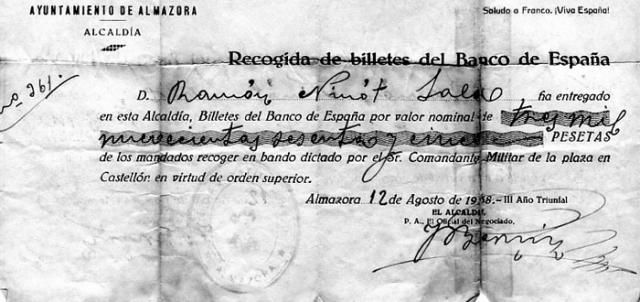 AYUNTAMIENTO DE ALMAZORA
ALCALDÍA
Saludo a Franco. ¡Viva España!
Recogida de billetes del Banco de España
no 261.
D. Ramón Ninót Sala ha entregado
en esta Alcaldía, Billetes del Banco de España por valor nominal de tres mil
nuevecientas sesenta y cinco PESETAS
de los mandados recoger en bando dictado por el Sr. Comandante Militar de la plaza en
Castellón en virtud de orden superior.
Almazora 12 de Agosto de 1938.-III Año Triunfal
EL ALCALDE
P. A., El Oficial del Negociado,
ALMAZORA